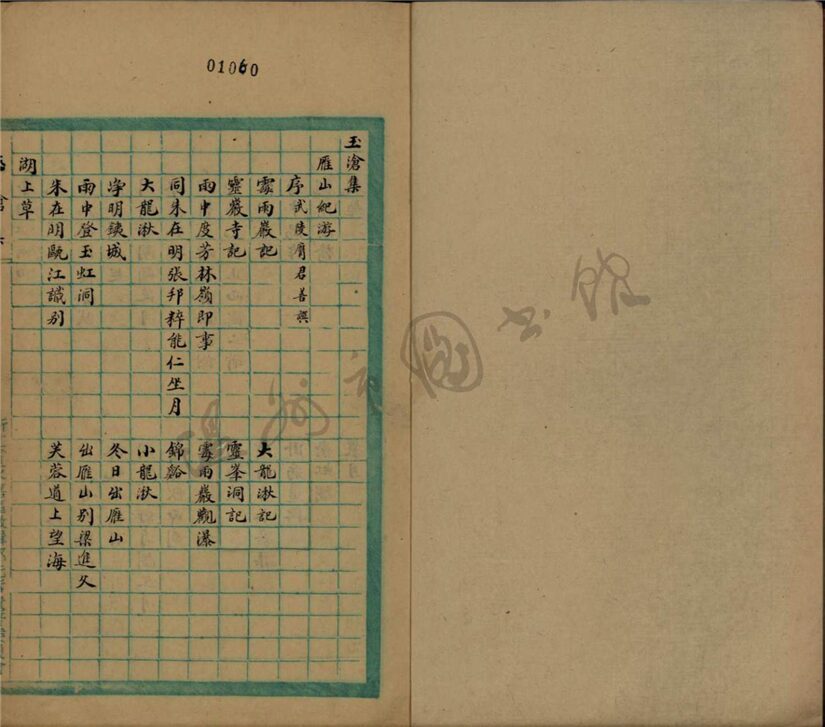 01060
玉滄集
雁山紀游
序 武陵 君善撰
霞雨巖記 大龍湫記
靈巖寺記 靈峯洞記
雨中度芳林嶺即事 霞雨巖觀瀑
同朱在明張邦粹能仁坐月 錦谿
大龍湫 小龍湫
淨明鐵城 冬日出雁山
雨中登玉虹洞 出雁山別梁進父
朱在明甌江議別 芙蓉道上望海
湖上草
溫州市圖书馆